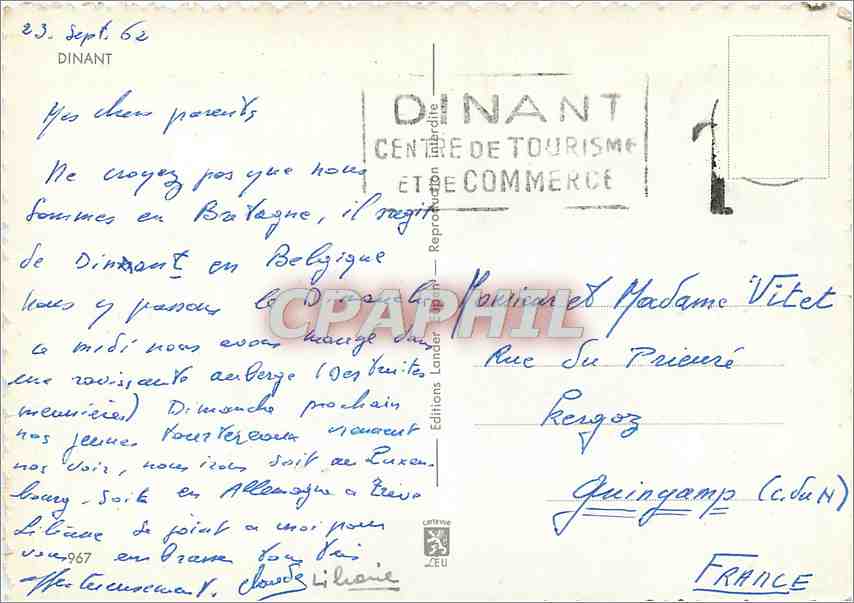 23. Sept. 62
DINANT
Mes chers parents
Ne croyez pas que nous
sommes en Bretagne, il s'agit
de Dinant en Belgique
nous y passons le Dimanche
ce midi nous avons mangé dans
une ravissante auberge (des truites
meunières) Dimanche prochain
nos jeunes tourtereaux viennent
nos voir, nous irons soit au Luxem-
bourg. Soit en Allemagne a Trèves
Liliane se joint a moi pour
vous embrasser tous très
affectueusement. Claude Liliane
967
DINANT
CENTRE DE TOURISME
ET DE COMMERCE
Editions Lander Eupen — Reproduction interdite
CPAPHIL
Monsieur et Madame Vitet
Rue du Prieuré
Kergoz
Guingamp (C. du N)
FRANCE